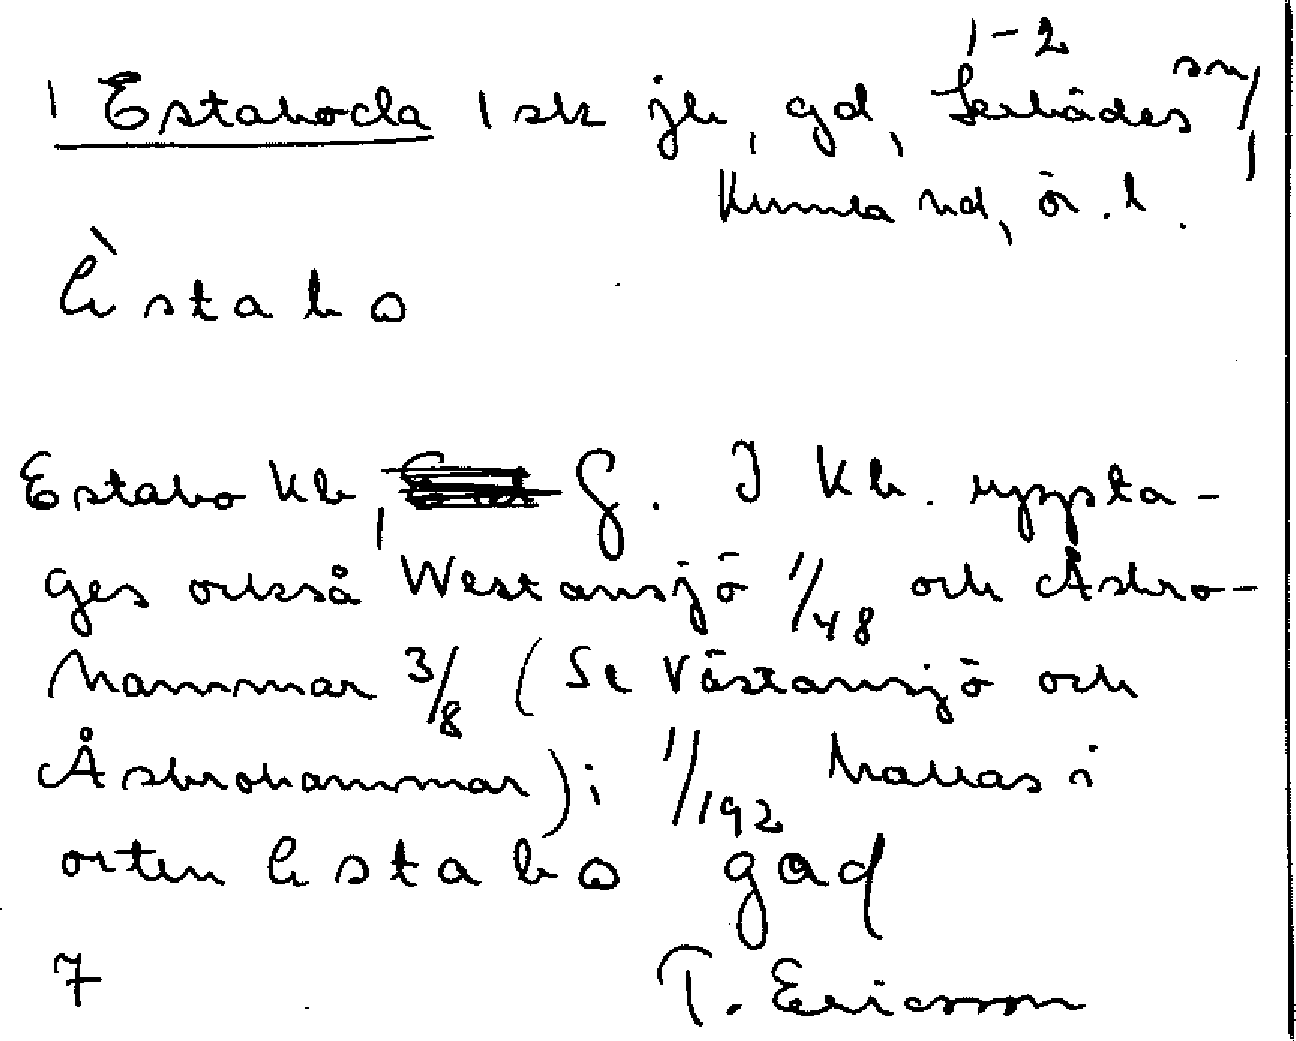 1-2
1 Estaboda 1 sk jb, gd, Lerbäcks sn,
Kumla hd, ör. l.
èstabo
Estabo Kb, G. I Kb. uppta-
ges också Westansjö 1/48 och Åsbro-
hammar 3/8 (Se Västansjö och
Åsbrohammar); 1/192 kallas i
orten estabo gad
7 T. Ericsson